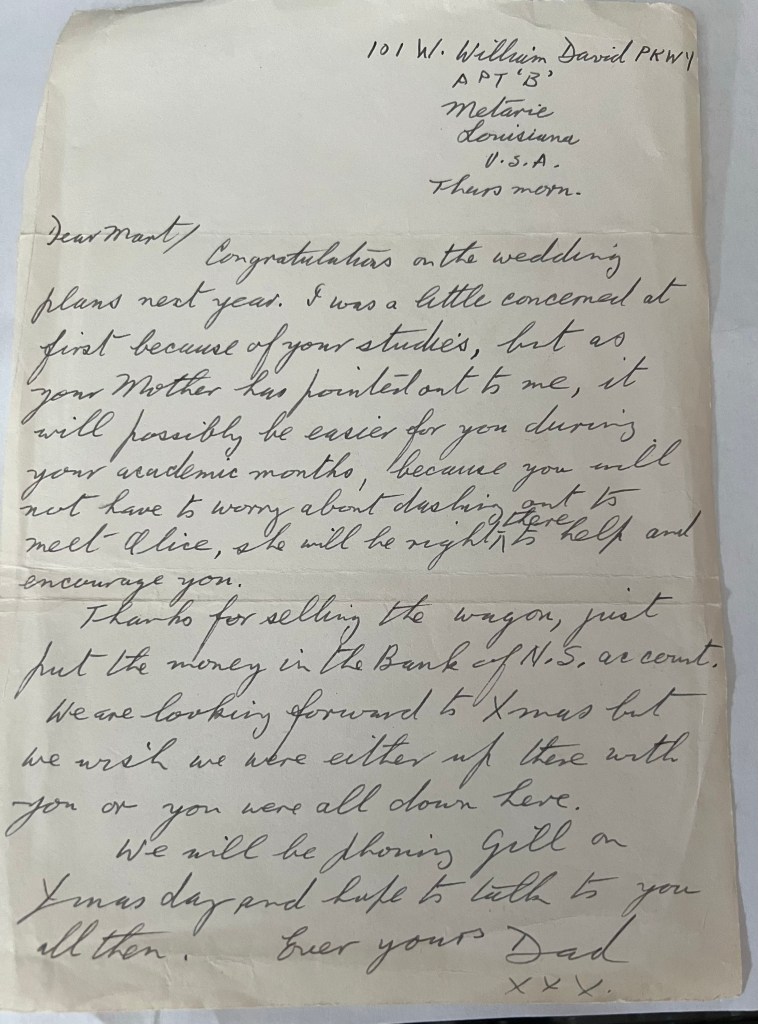 101 W. William David PKWY
APT 'B'
Metarie
Louisiana
U.S.A.
Thurs morn.
Dear Mart/
Congratulations on the wedding
plans next year. I was a little concerned at
first because of your studies, but as
your Mother has pointed out to me, it
will possibly be easier for you during
your academic months, because you will
not have to worry about dashing out to
meet Alice, she will be right there to help and
encourage you.
Thanks for selling the wagon, just
put the money in the Bank of N.S. account.
We are looking forward to Xmas but
we wish we were either up there with
you or you were all down here.
We will be phoning Gill on
Xmas day and hope to talk to you
all then. Ever yours Dad
x x x.